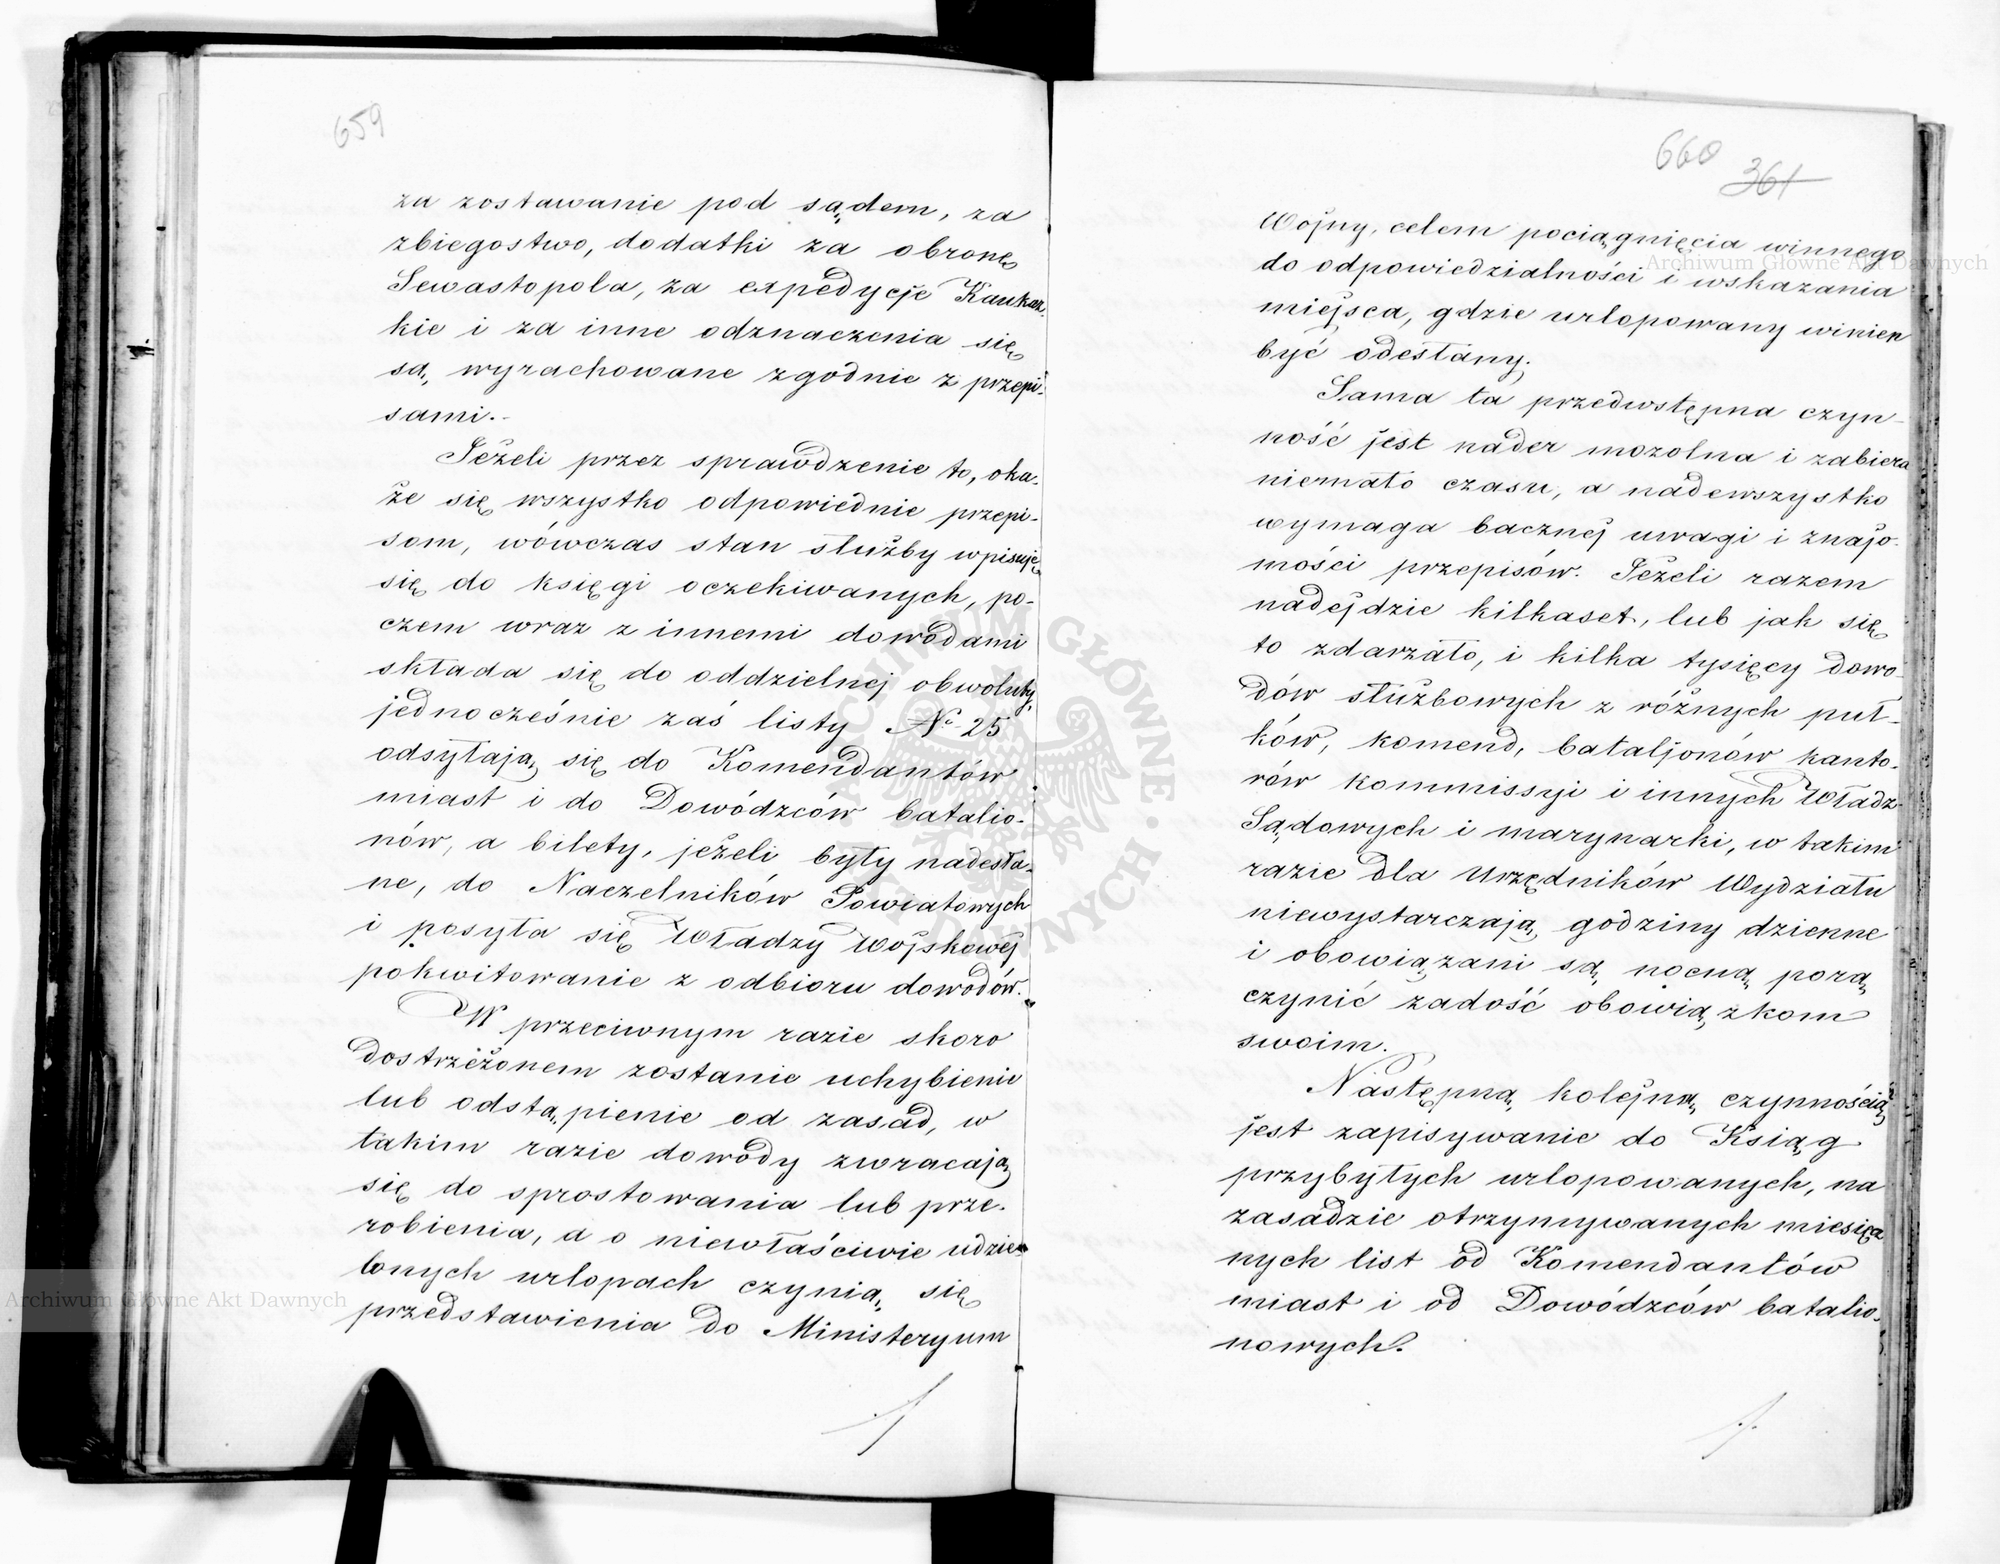 659
za zostawanie pod sądem, za
zbiegostwo, dodatki za obronę
Sewastopola, za expedycje Kaukaz-
kie i za inne odznaczenia się
są, wyrachowane zgodnie z przepi-
sami.-
Jeżeli przez sprawdzenie to, oka-
że się wszystko odpowiednie przepi-
som, wówczas stan służby wpisuje
się do księgi oczekiwanych, po-
czem wraz z innemi dowodami
składa się do oddzielnej obwoluty,
jednocześnie zaś listy No 25
odsyłają się do Komendantów
miast i do Dowódzców batalio-
nów, a bilety, jeżeli były nadesła-
ne, do Naczelników Powiatowych
i posyła się Władzy Wojskowej
pokwitowanie z odbioru dowodów.
W przeciwnym razie skoro
dostrzeżonem zostanie uchybienie
lub odstąpienie od zasad, w
takim razie dowody zwracają
się do sprostowania lub prze-
robienia, a o niewłaściwie udzie-
lonych urlopach czynią się
przedstawienia do Ministeryum
660
361
Wojny, celem pociągnięcia winnego
do odpowiedzialności i wskazania
miejsca, gdzie urlopowany winien
być odesłany.
Sama ta przedwstępna czyn-
ność jest nader mozolna i zabiera
niemało czasu, a nadewszystko
wymaga bacznej uwagi i znajo-
mości przepisów. Jeżeli razem
nadejdzie kilkaset, lub jak się
to zdarzało, i kilka tysięcy dowo-
dów służbowych z różnych puł-
ków, komend, bataljonów kanto-
rów kommissyi i innych Władz
Sądowych i marynarki, w takim
razie dla Urzędników Wydziału
niewystarczają godziny dzienne
i obowiązani są, nocną porą,
czynić zadość obowiązkom
swoim.
Następną, kolejną, czynnością
jest zapisywanie do Ksiąg
przybyłych urlopowanych, na
zasadzie otrzymywanych miesięcz
nych list od Komendantów
miast i od Dowódzców batalio-
nowych.
Archiwum Główne Akt Dawnych
Archiwum Główne Akt Dawnych
ARCHIWUM GŁÓWNE AKT DAWNYCH